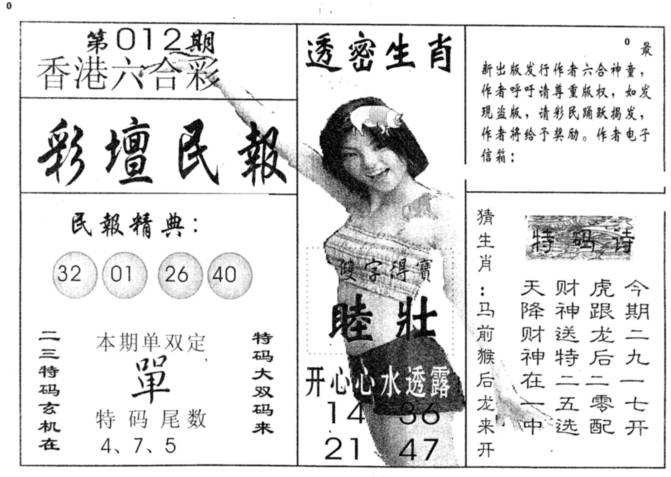 0
第012期
香港六合彩
彩壇民報
民報精典：
32 01 26 40
二三特码玄机在
本期单双定
單
特码尾数
4、7、5
特码大双码来
透密生肖
双字得寶
睦壯
开心心水透露
14 36
21 47
0
最
新出版发行作者六合神童，
作者呼吁请尊重版权，如发
现盗版，请彩民踊跃揭发，
作者将给予奖励。作者电子
信箱：
特码诗
今期二九一七开
虎跟龙后二零配
财神送特二五选
天降财神在一中
猜生肖：马前猴后龙来开